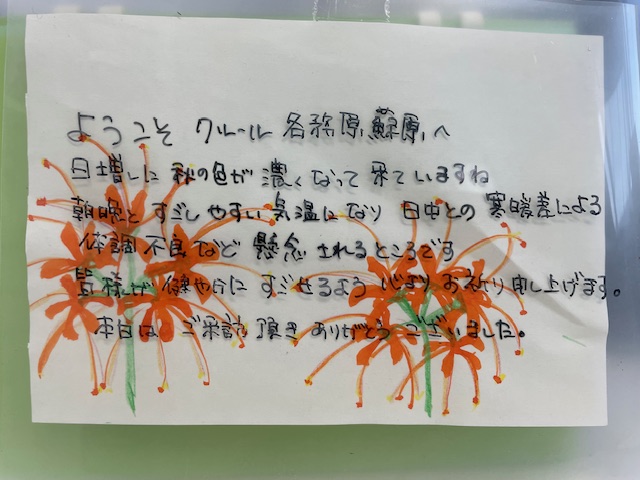 ようこそ クルール 各務原蘇原へ
日増しに 秋の色が 濃くなって 来ていますね
朝晩と すごしやすい 気温になり 日中との 寒暖差による
体調不良など 懸念されるところです
皆様が 健やかに すごせるよう 心より お祈り申し上げます。
本日は、ご来訪頂き ありがとうございました。